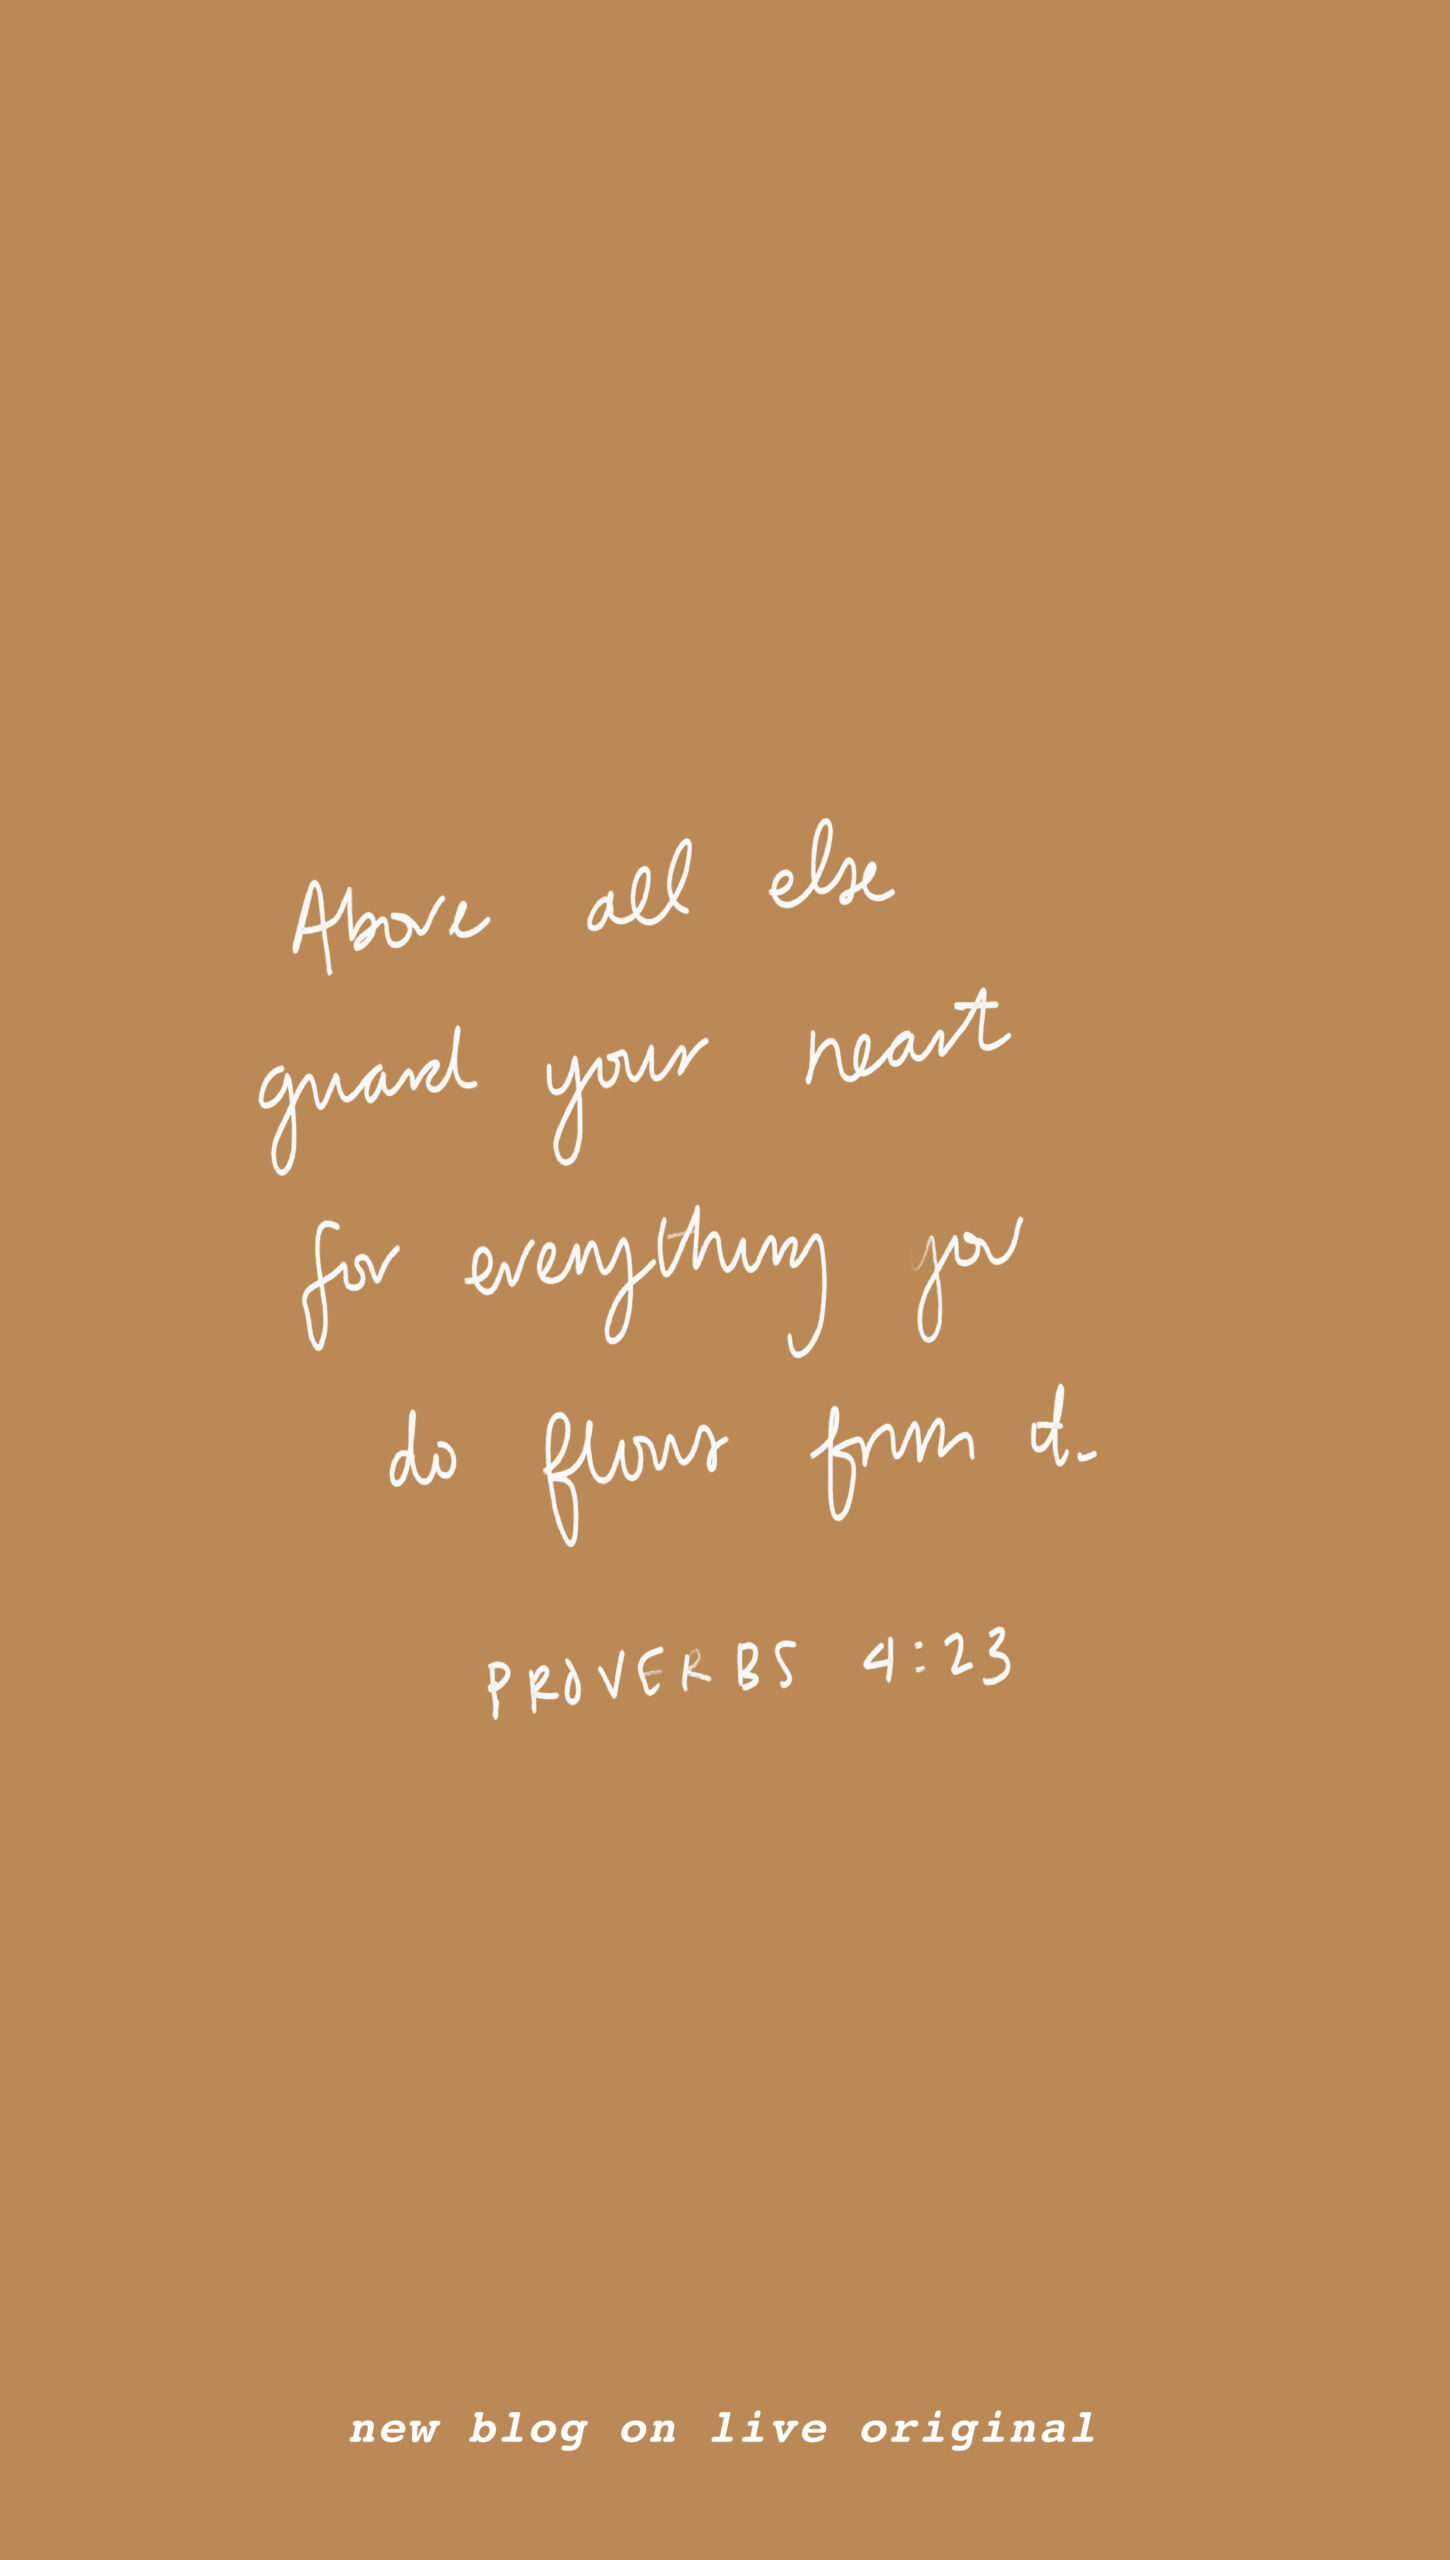 Above all else
guard your heart
for everything you
do flows from it.
PROVERBS 4:23
new blog on live original